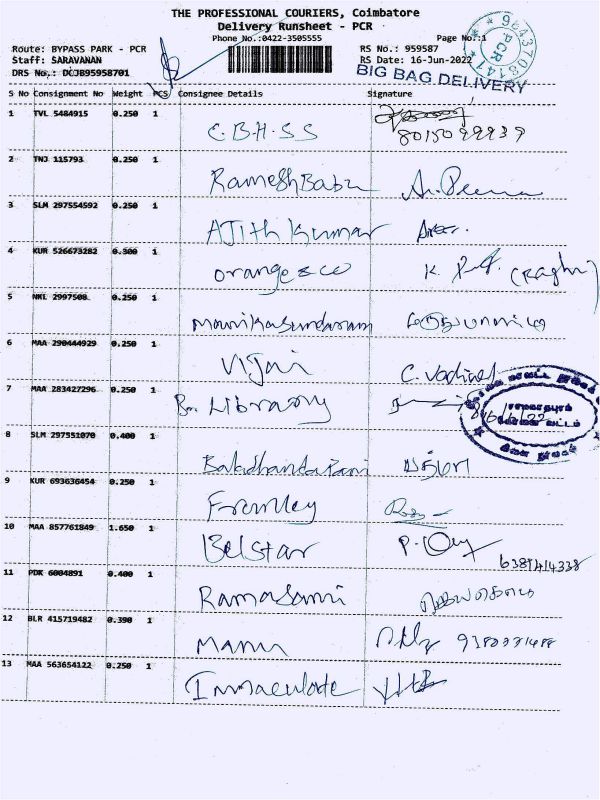 THE PROFESSIONAL COURIERS, Coimbatore
Delivery Runsheet - PCR
Phone No.:0422-3505555
Page No.:1
Route: BYPASS PARK - PCR
RS No.: 959587
Staff: SARAVANAN
RS Date: 16-Jun-2022
DRS No.: DCJB95958701
BIG BAG DELIVERY
PCR
S No Consignment No Weight PCS Consignee Details Signature
1 TVL 5484915 0.250 1 C.B.H.S.S
2 TNJ 115793 0.250 1 Ramesh Babu
3 SLM 297554592 0.250 1 AJith Kumar
4 KUR 526673282 0.300 1 Orangesco K. (Raghu)
5 NKL 2997508 0.250 1 Manikasundaram
6 MAA 290444929 0.250 1 Vijai
7 MAA 283427296 0.250 1 Library
8 SLM 297551070 0.400 1 Baladhandapani
9 KUR 693636454 0.250 1
10 MAA 857761849 1.650 1 Belstar
11 PDK 6004891 0.400 1 Ramasami
12 BLR 415719482 0.390 1 Manu
13 MAA 563654122 0.250 1 Immaculate